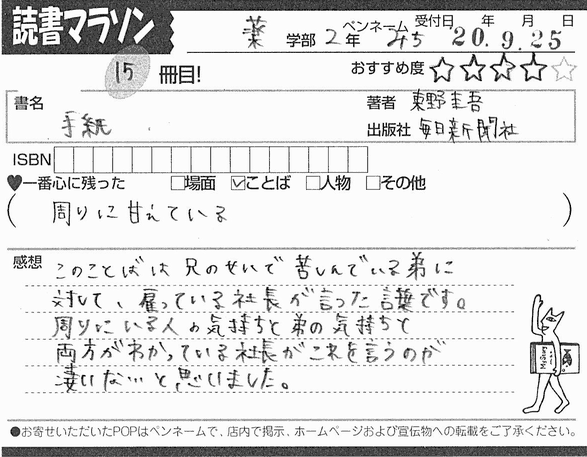 読書マラソン
薬 学部 2年 ペンネーム みち 受付日 年 月 日 20.9.25
15 冊目!
おすすめ度 ☆☆☆☆☆
書名 手紙
著者 東野圭吾
出版社 毎日新聞社
ISBN
♥一番心に残った □場面 ☑ことば □人物 □その他
(周りに甘えている)
感想 このことばは兄のせいで苦しんでいる弟に
対して、雇っている社長が言った言葉です。
周りにいる人の気持ちと弟の気持ちと
両方がわかっている社長がこれを言うのが
凄いな…と思いました。
●お寄せいただいたPOPはペンネームで、店内で掲示、ホームページおよび宣伝物への転載をご了承ください。